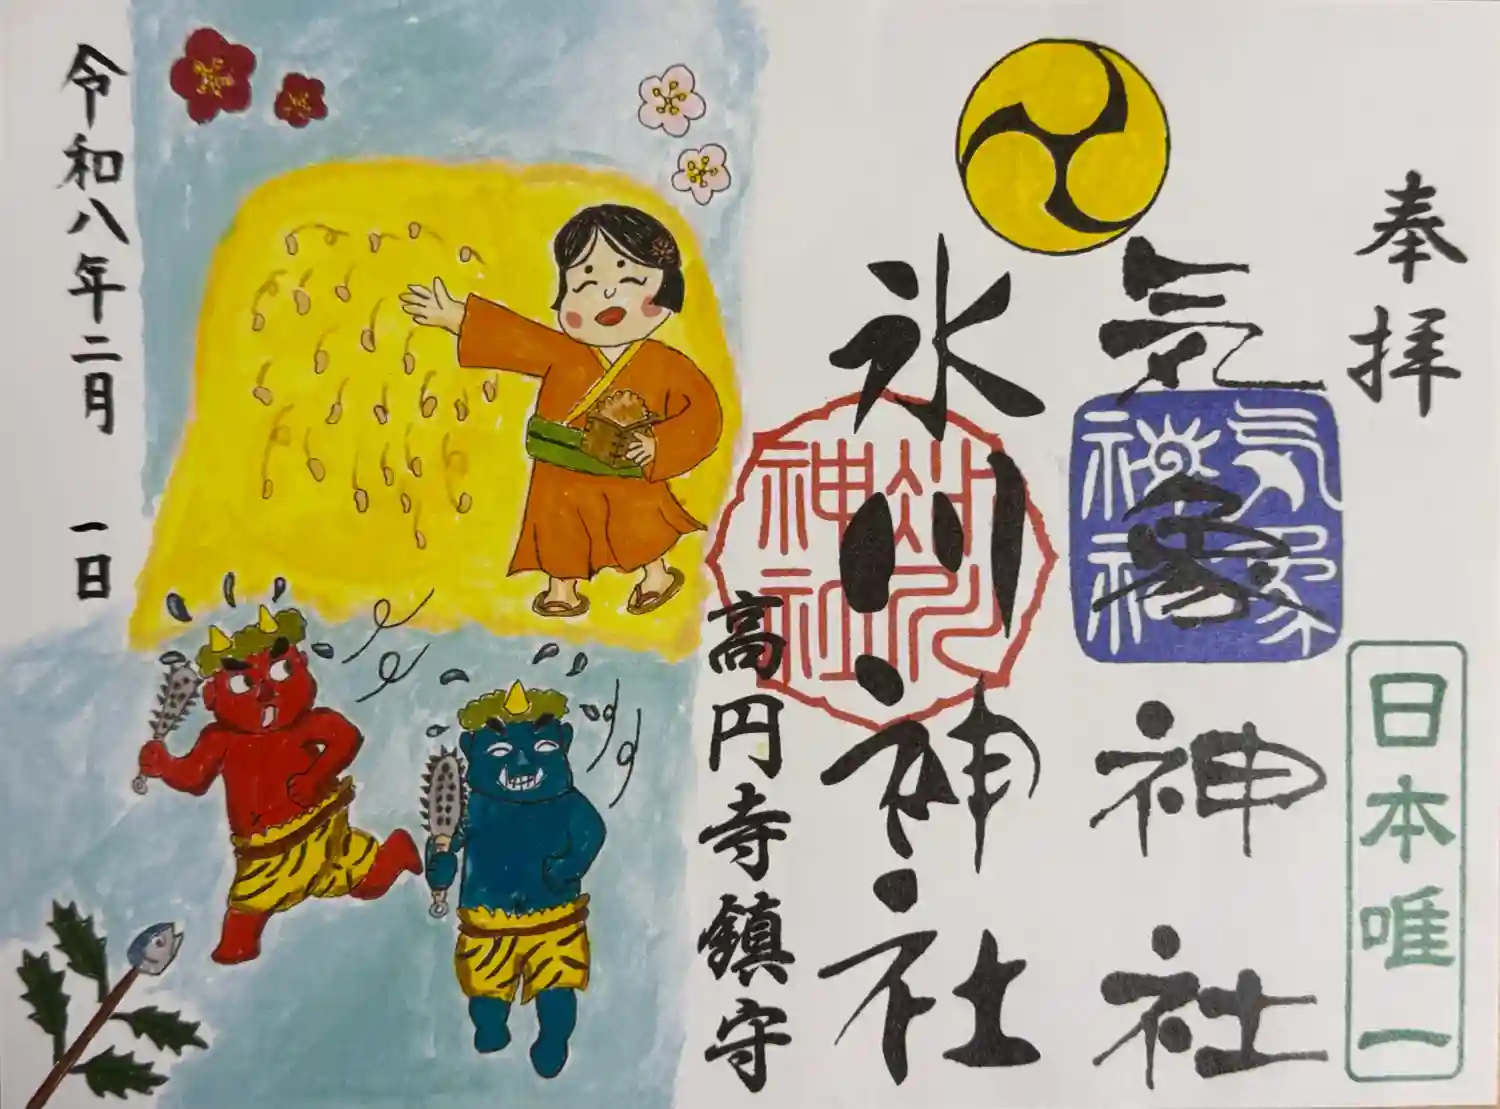 奉拝
日本唯一
気象神社
気象神社
氷川神社
氷川神社
高円寺鎮守
令和八年二月一日